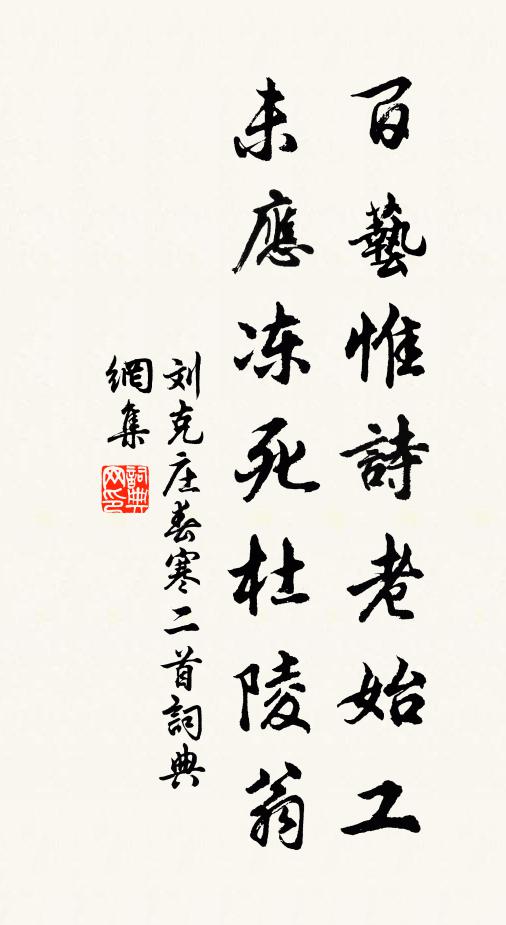 百藝惟詩老始工
未應冻死杜陵翁
刘克庄春寒二首詞典
網集
詞典網印